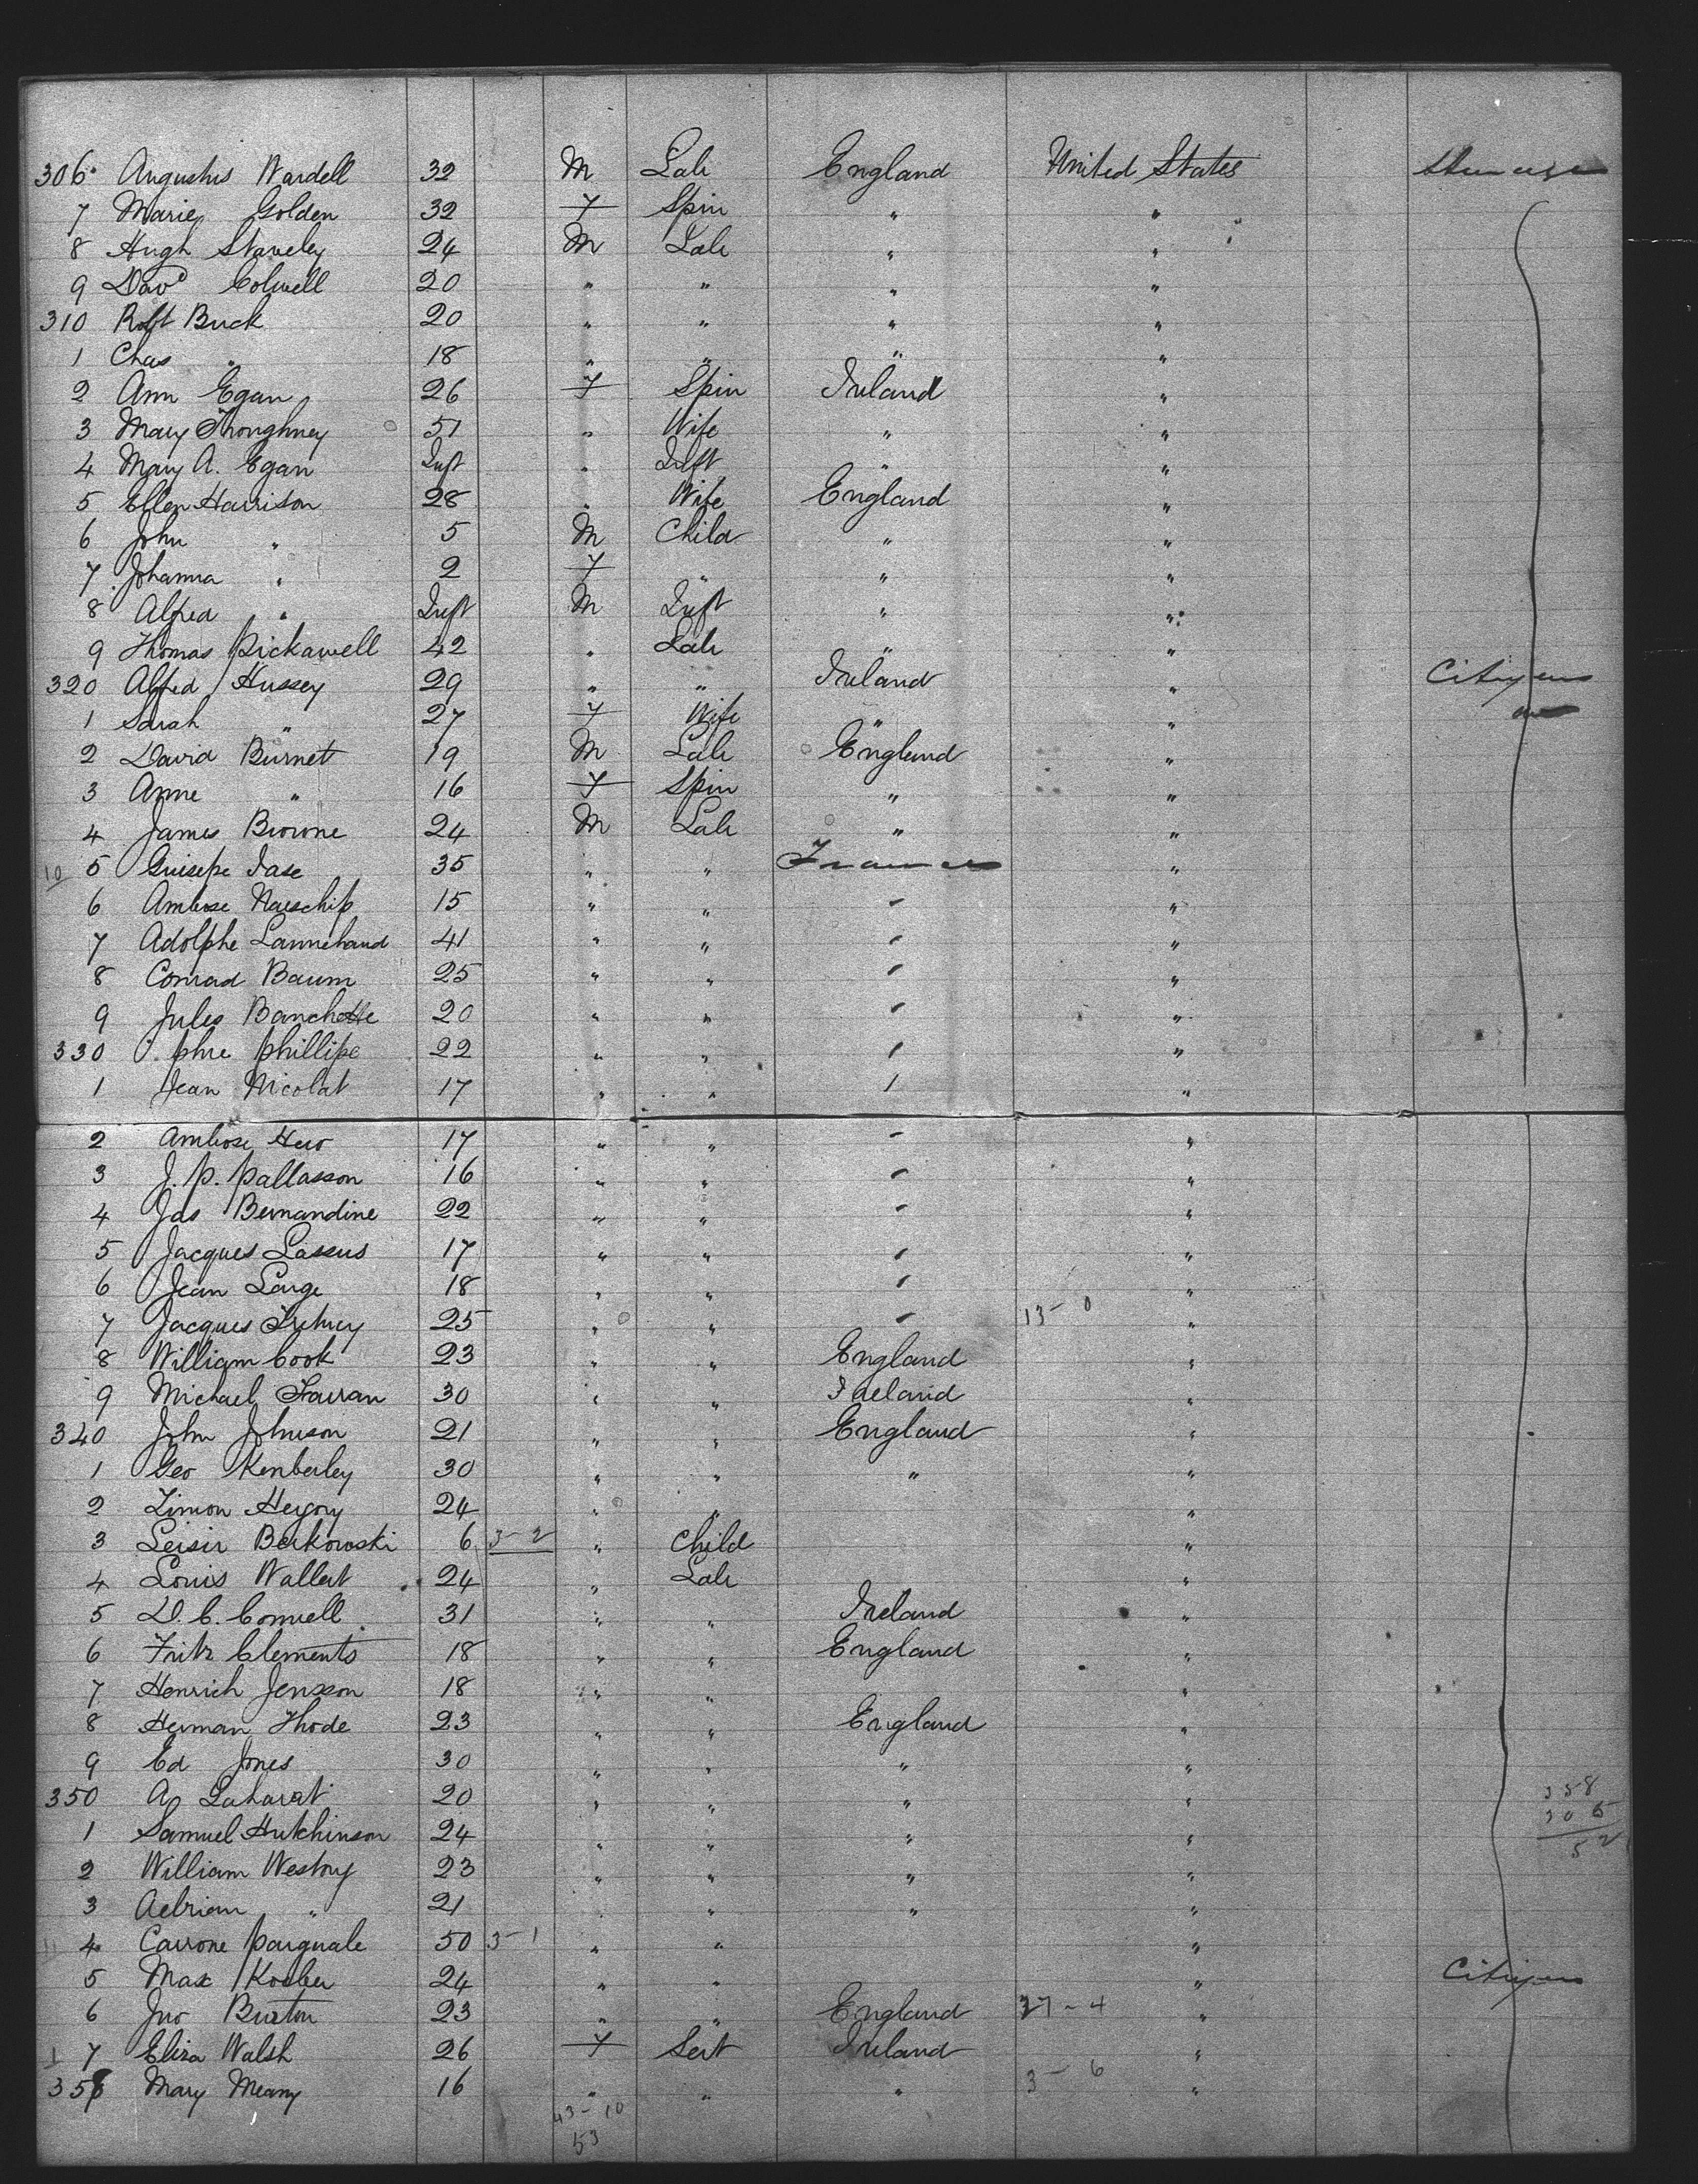 306 Augustus Wardell 32 M Lab England United States Steerage
7 Marie Golden 32 F Spin " "
8 Hugh Staveley 24 M Lab " "
9 Davd Colwell 20 " " " "
310 Robt Buck 20 " " " "
1 Chas " 18 " " " "
2 Ann Egan 26 F Spin Ireland "
3 Mary Thoughney 51 " Wife " "
4 Mary A. Egan Inft " Inft " "
5 Ellen Harrison 28 " Wife England "
6 John " 5 M Child " "
7 Johanna " 2 F " " "
8 Alfred " Inft M Inft " "
9 Thomas Pickawell 42 " Lab " "
320 Alfred Hussey 29 " " Ireland " Citizens
1 Sarah " 27 F Wife " "
2 David Burnet 19 M Lab England "
3 Anne " 16 F Spin " "
4 James Browne 24 M Lab " "
10 5 Guisepe Iase 35 " " France "
6 Ambose 15 " " " "
7 Adolphe 41 " " " "
8 Conrad Baum 25 " " " "
9 Jules Banchette 20 " " " "
330 phre Phillipe 22 " " " "
1 Jean Nicolat 17 " " " "
2 Ambose 17 " " " "
3 J. P. Pallasson 16 " " " "
4 Jas Bernandine 22 " " " "
5 Jacques Lassus 17 " " " "
6 Jean Large 18 " " " "
7 Jacques 25 " " " 13-0 "
8 William Cook 23 " " England "
9 Michael Farran 30 " " Ireland "
340 John Johnson 21 " " England "
1 Geo Kenberley 30 " " " "
2 Simon Hegory 24 " " "
3 Leisir Berkowski 6 3-2 " Child "
4 Louis Wallert 24 " Lab "
5 D. C. Conwell 31 " " Ireland "
6 Fritz Clements 18 " " England "
7 Henrich Jensson 18 " " "
8 Herman Thode 23 " " England "
9 Ed Jones 30 " " " "
350 A Laharat 20 " " " " 358
1 Samuel Hutchinson 24 " " " " 306
2 William Westoy 23 " " " " 52
3 Aelrian " 21 " " " "
11 4 Carrone Parquale 50 3-1 " " "
5 Max Koeber 24 " " " Citizen
6 Jno Burton 23 " " England 37-4 "
1 7 Eliza Walsh 26 F Sert Ireland "
358 Mary Meany 16 " " " 3-6 "
43-10
53